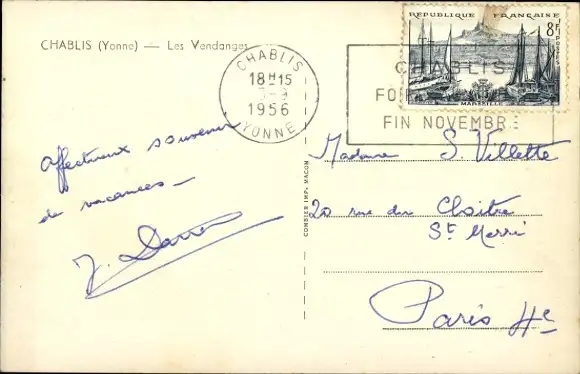 CHABLIS (Yonne) — Les Vendanges
CHABLIS
18H15
1956
YONNE
RÉPUBLIQUE FRANÇAISE
8F
POSTES
MARSEILLE
CHABLIS
FO
FIN NOVEMBRE
Affectueux souvenir
de vacances —
COMBIER IMP. MACON
Madame S. Villette
20 rue du Cloitre
St Merri
Paris 4e